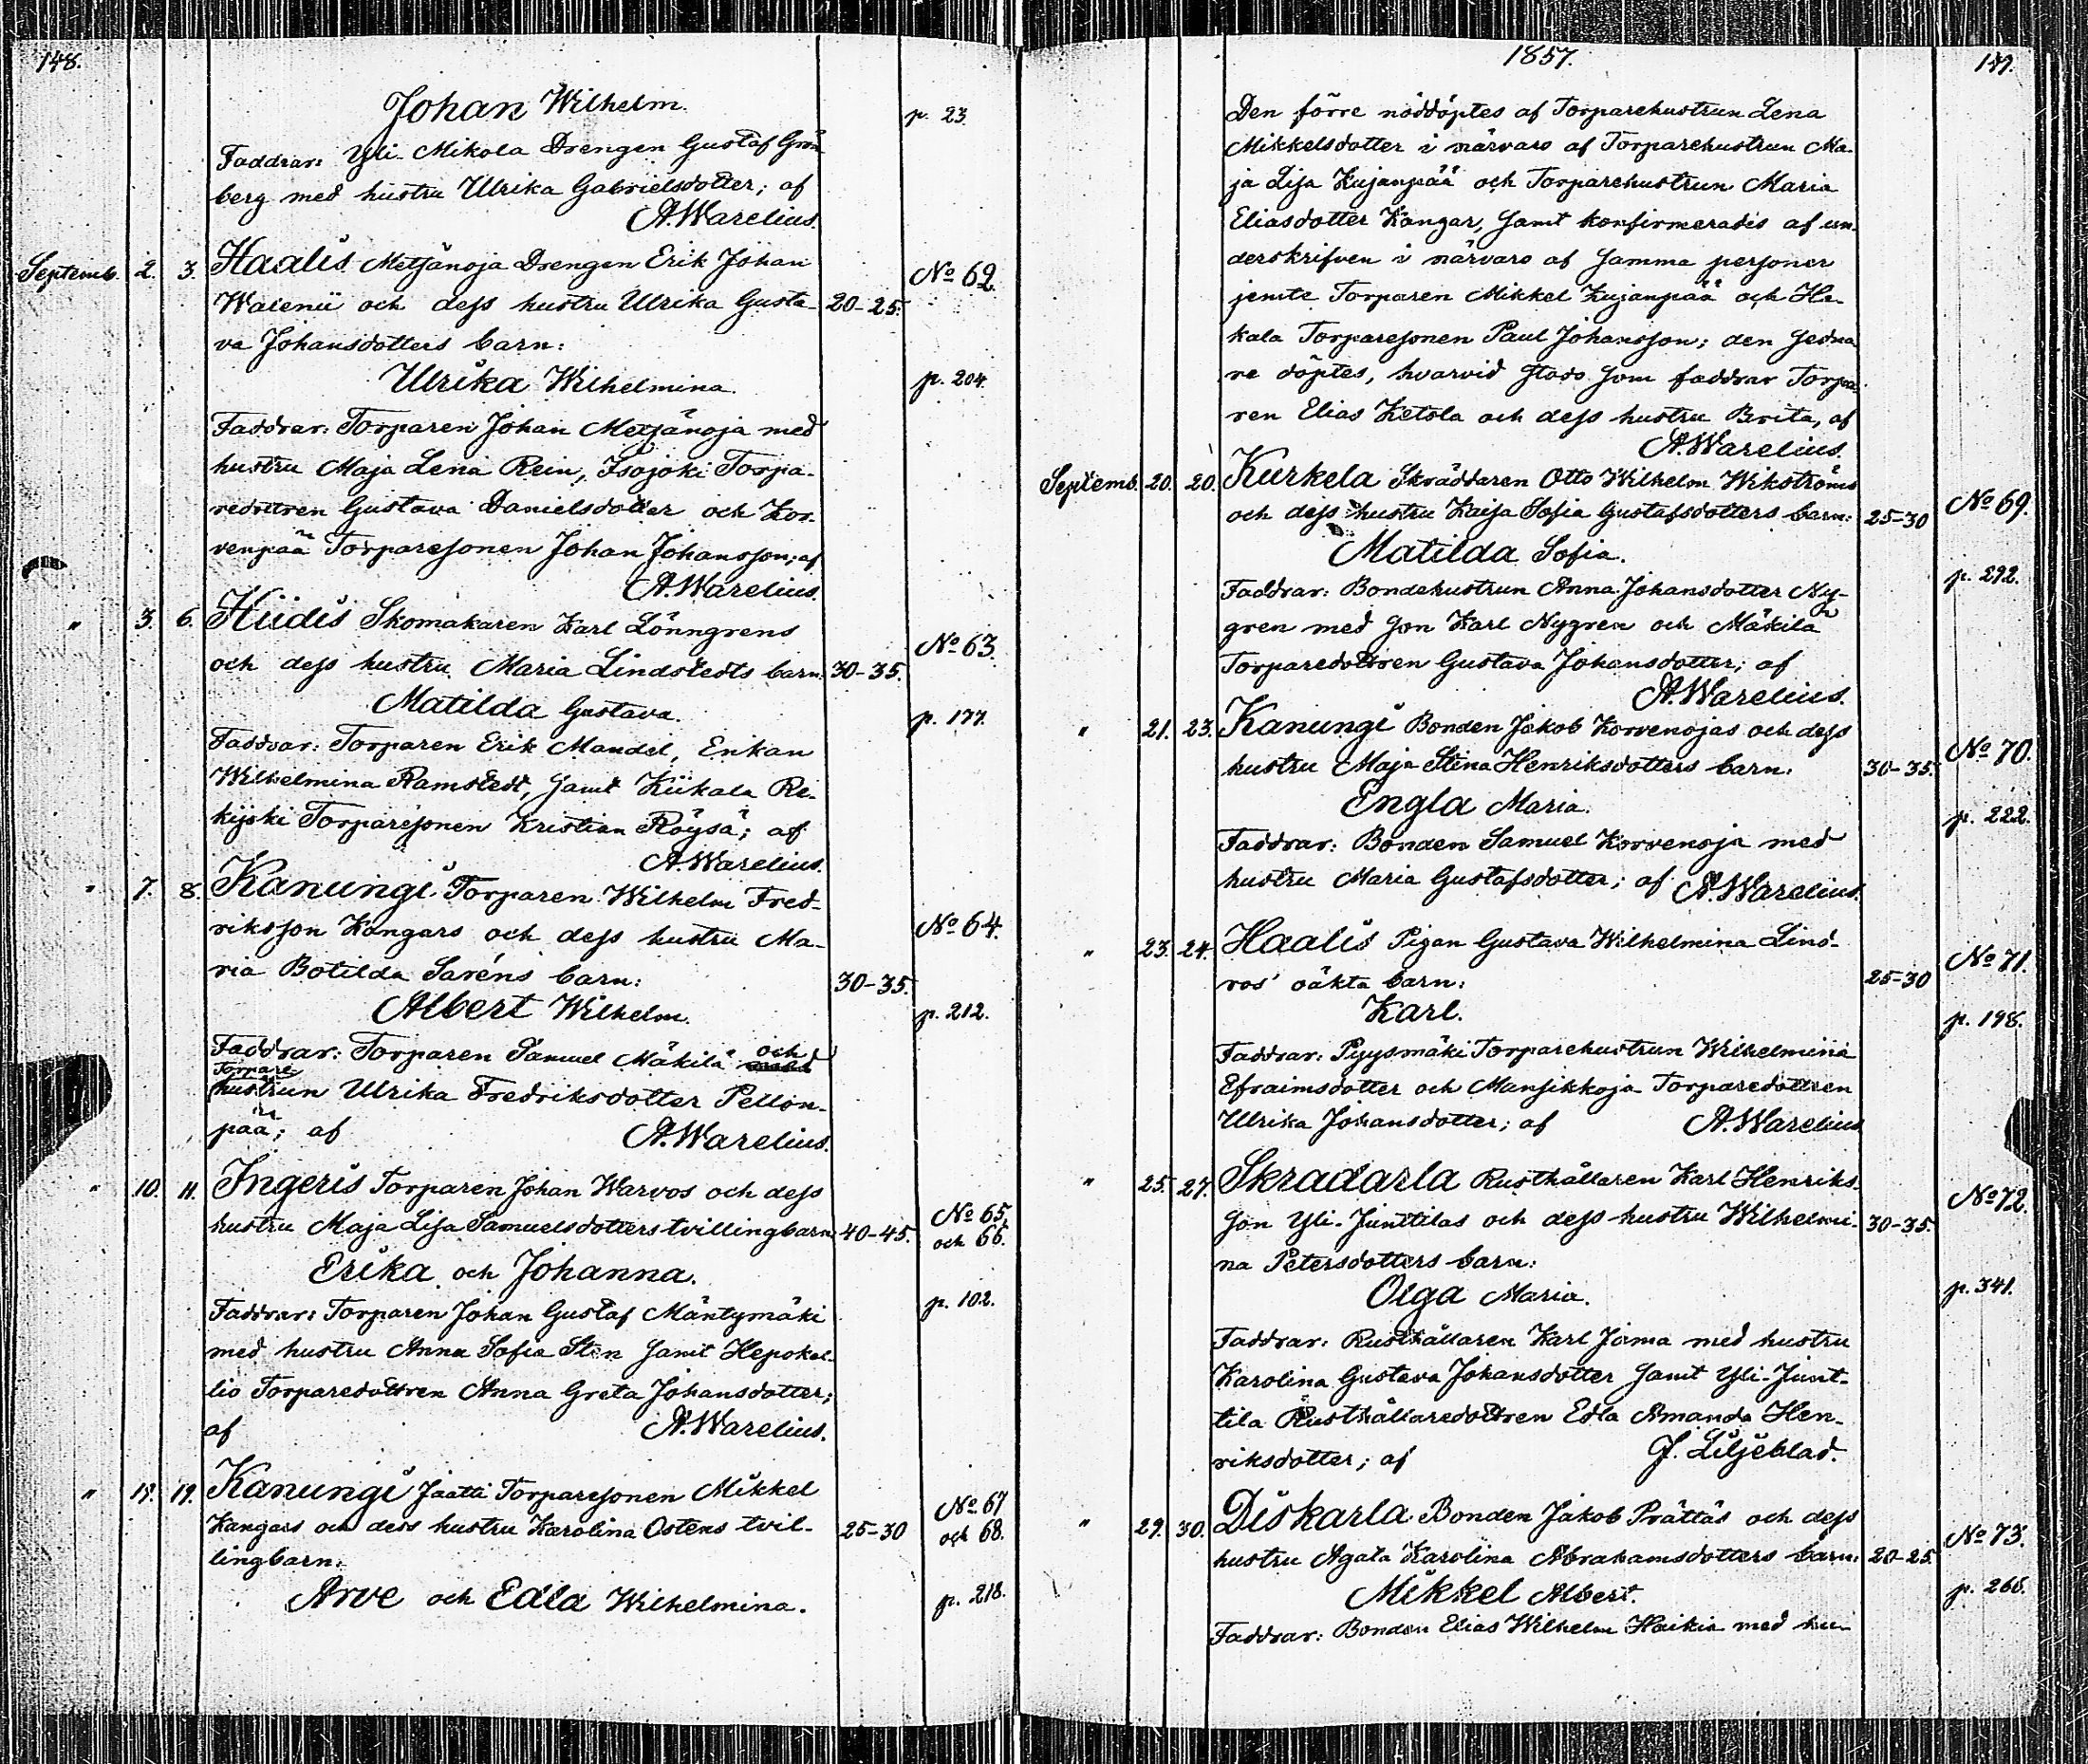 148.
Johan Wilhelm.
p. 23.
Faddrar: Yli-Mikola Drengen Gustaf Grön
berg med hustru Ulrika Gabrielsdotter; af
A. Warelius.
Septemb. 2. 3. Haalis Metsänoja Drengen Erik Johan
No 62.
Walenii och dess hustru Ulrika Gusta- 20-25.
va Johansdotters barn:
Ulrika Wilhelmina.
p. 204.
Faddrar: Torparen Johan Metsänoja med
hustru Maja Lena Rein, Isojoki Torpa-
redottren Gustava Danielsdotter och Kor-
venpää Torparesonen Johan Johansson; af
A. Warelius.
" 3. 6. Hiidis Skomakaren Karl Lönngrens
No 63.
och dess hustru Maria Lindstedts barn: 30-35.
Matilda Gustava.
p. 177.
Faddrar: Torparen Erik Mandel, Enkan
Wilhelmina Ramstedt, samt Kiikala Re-
kijoki Torparesonen Kristian Röysä; af
A. Warelius.
" 7. 8. Kanungi Torparen Wilhelm Fred-
No 64.
riksson Kangars och dess hustru Ma-
ria Botilda Saréns barn: 30-35.
Albert Wilhelm.
p. 212.
Faddrar: Torparen Samuel Mäkilä och
Torpare
hustrun Ulrika Fredriksdotter Pellon-
pää; af A. Warelius.
" 10. 11. Ingeris Torparen Johan Warvos och dess
No 65
hustru Maja Lisa Samuelsdotters tvillingbarn: 40-45.
och 66.
Erika och Johanna.
p. 102.
Faddrar: Torparen Johan Gustaf Mäntymäki
med hustru Anna Sofia Sten samt Hepokal-
lio Torparedottren Anna Greta Johansdotter;
af A. Warelius.
" 18. 19. Kanungi Jaatti Torparesonen Mikkel
No 67
Kangars och dess hustru Karolina Ostens tvil- 25-30
och 68.
lingbarn:
Arve och Edla Wilhelmina.
p. 218.
1857.
149.
Den förre nöddöptes af Torparehustrun Lena
Mikkelsdotter i närvaro af Torparehustrun Ma-
ja Lisa Kujanpää och Torparehustrun Maria
Eliasdotter Kangar, samt konfirmerades af un-
derskrifven i närvaro af samma personer
jemte Torparen Mikkel Kujanpää och He-
kala Torparesonen Paul Johansson; den sedna
re döptes, hvarvid stodo som faddrar Torpa-
ren Elias Ketola och dess hustru Brita, af
A. Warelius.
Septemb. 20. 20. Kurkela Skräddaren Otto Wilhelm Wikströms
No 69.
och dess hustru Kaisa Sofia Gustafsdotters barn: 25-30
Matilda Sofia.
p. 292.
Faddrar: Bondehustrun Anna Johansdotter Ny-
gren med son Karl Nygren och Mäkilä
Torparedottren Gustava Johansdotter; af
A. Warelius.
" 21. 23. Kanungi Bonden Jakob Korvenojas och dess
No 70.
hustru Maja Stina Henriksdotters barn: 30-35.
Engla Maria.
p. 222.
Faddrar: Bonden Samuel Korvenoja med
hustru Maria Gustafsdotter; af A. Warelius.
" 23. 24. Haalis Pigan Gustava Wilhelmina Lind-
No 71.
ros' oäkta barn: 25-30
Karl.
p. 198.
Faddrar: Pyysmäki Torparehustrun Wilhelmina
Efraimsdotter och Mansikkoja Torparedottren
Ulrika Johansdotter; af A. Warelius
" 25. 27. Skradarla Rusthållaren Karl Henriks-
No 72.
son Yli-Junttilas och dess hustru Wilhelmi- 30-35.
na Petersdotters barn:
Olga Maria.
p. 341.
Faddrar: Rusthållaren Karl Jama med hustru
Karolina Gustava Johansdotter samt Yli-Junt-
tila Rusthållaredottren Edla Amanda Hen-
riksdotter; af J. Liljeblad.
" 29. 30. Diskarla Bonden Jakob Prättäs och dess
No 73.
hustru Agata Karolina Abrahamsdotters barn: 20-25.
Mikkel Albert.
p. 265.
Faddrar: Bonden Elias Wilhelm Haikia med hu-